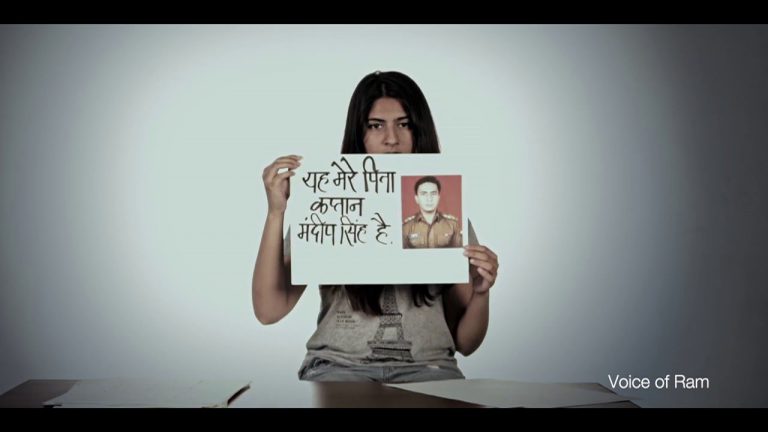 यह मेरे पिता
कप्तान
मंदीप सिंह है.
Voice of Ram